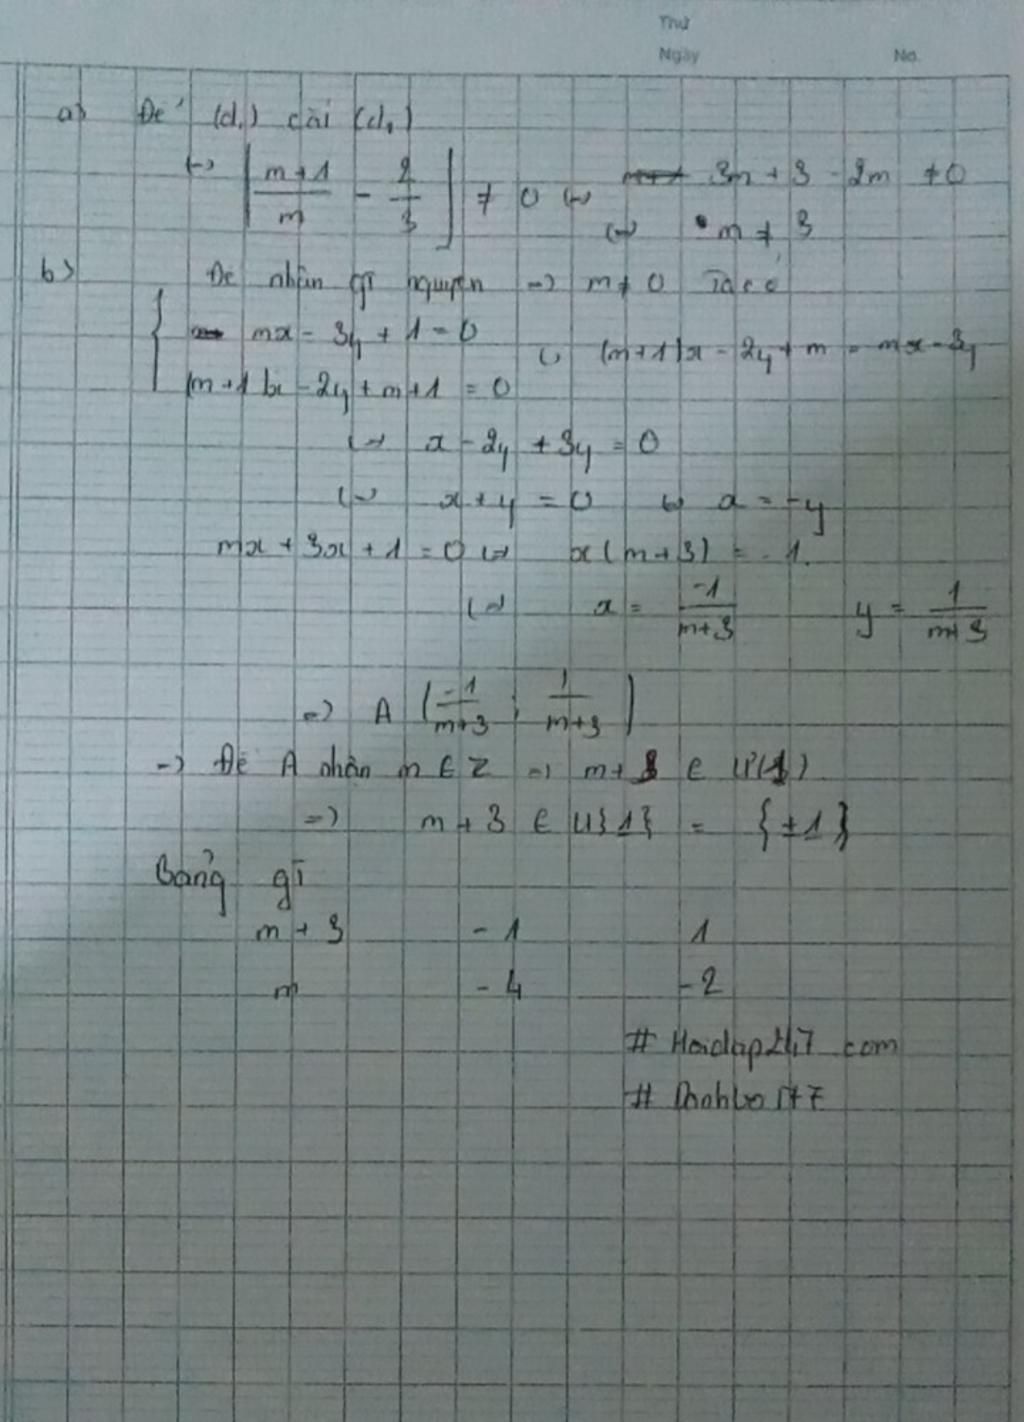 Thứ
Ngày No.
a) Để (d₁) cắt (d₂)
(-) [(m+1)/m - 2/3] ≠ 0 (-) 3m + 3 - 2m ≠ 0
(-) m ≠ 3
b) Để nhận gT nguyên => m ≠ 0 Ta có
mx - 3y + 1 = 0
(m+1)x - 2y + m = mx - 3y
(m+1)x - 2y + m + 1 = 0
(-) x - 2y + 3y = 0
(-) x + y = 0 (-) x = -y
mx + 3x + 1 = 0 (-) x(m+3) = -1.
(-) x = -1/(m+3) y = 1/(m+3)
=> A (-1/(m+3) ; 1/(m+3))
-> Để A nhận m ∈ Z => m + 3 ∈ Ư(1)
=> m + 3 ∈ Ư{1} = {±1}
Bảng gT
m + 3 -1 1
m -4 -2
# Hoidap247 com